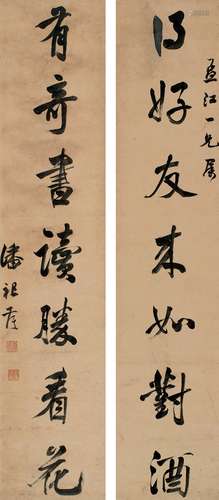 得好友来如對酒
有奇書讀勝看花
江一兄屬
潘祖蔭